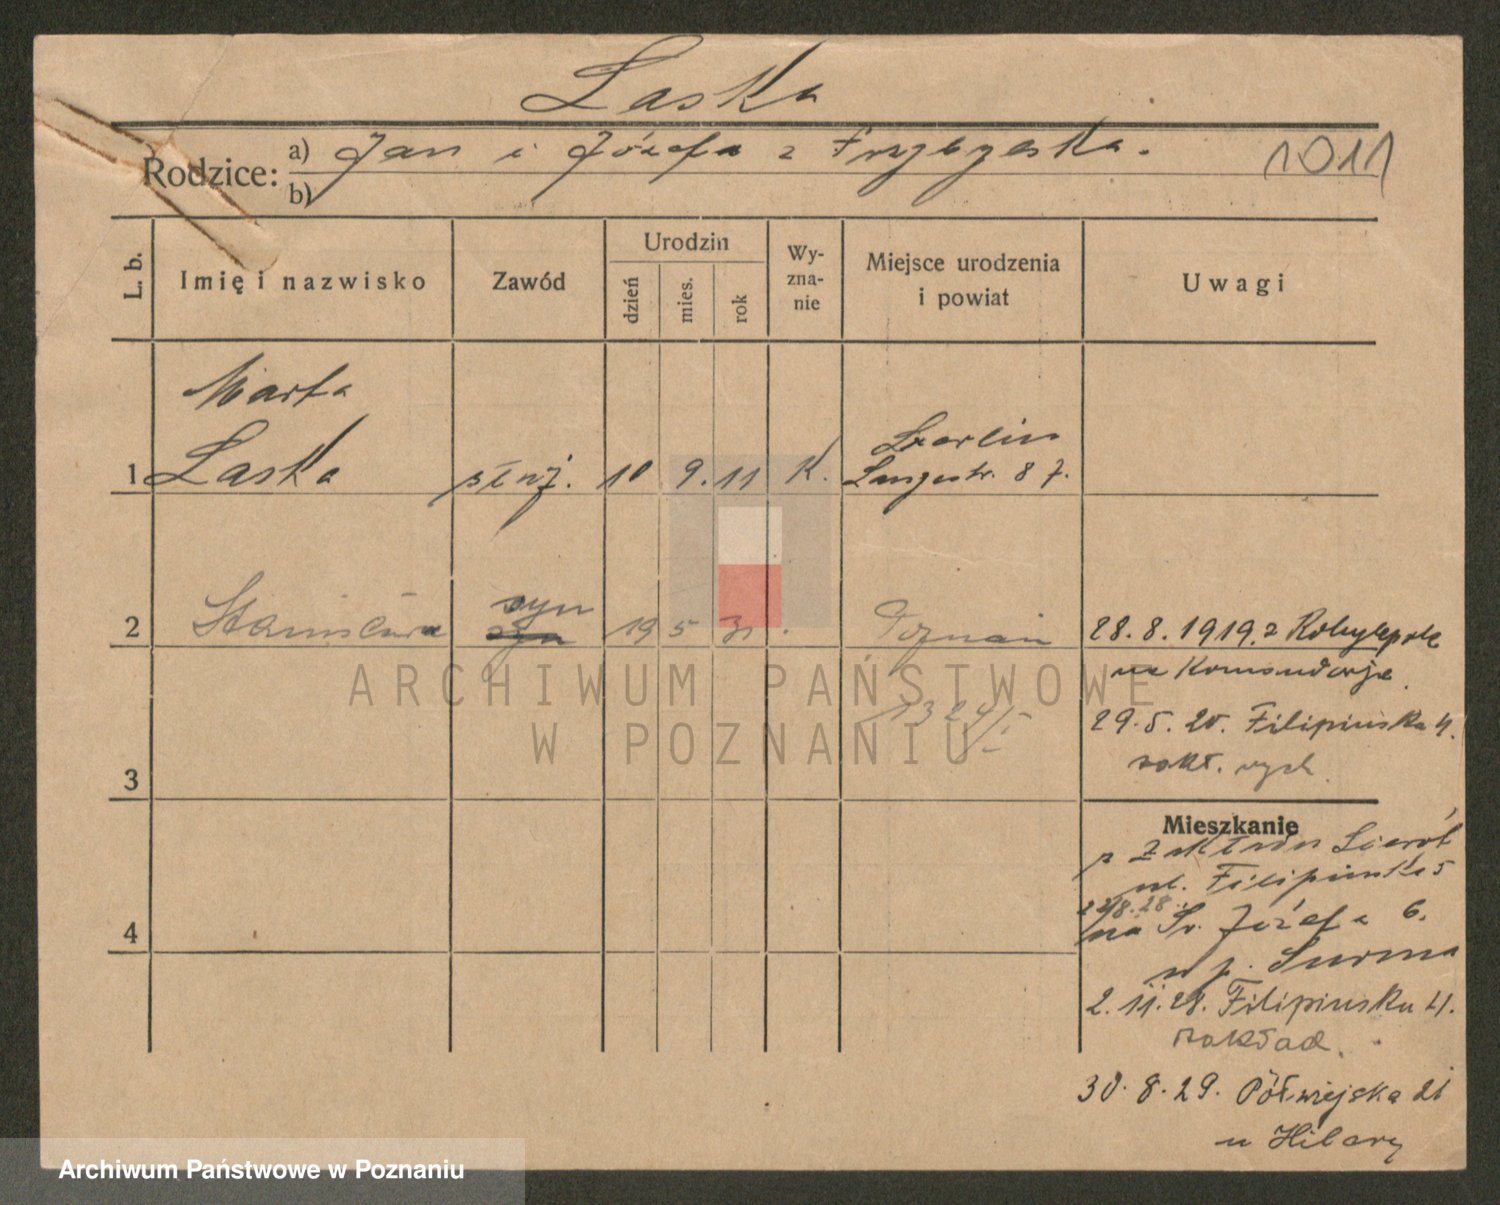 Laska
Rodzice: a) Jan i Józefa z
b)
1011
L. b.
Imię i nazwisko
Zawód
Urodzin
dzień
mies.
rok
Wy-
zna-
nie
Miejsce urodzenia
i powiat
Uwagi
Marta
1 Laska służ. 10 9. 11 K. Berlin
Langestr. 87.
2 Stanisława syn 19 5 31. Poznań
syn
1324/I
28.8.1919. z Kobylepole
na Komandorje
29.5.20. Filipinska 4.
zakł. wych.
3
Mieszkanie
w Zakładu Sierot
ul. Filipinska 5
22/8.28.
na Św. Józefa 6.
w p. Surma
2.11.28. Filipinska 4.
zakład.
4
30.8.29. Półwiejska 21
u Hilary
ARCHIWUM PAŃSTWOWE
W POZNANIU
Archiwum Państwowe w Poznaniu